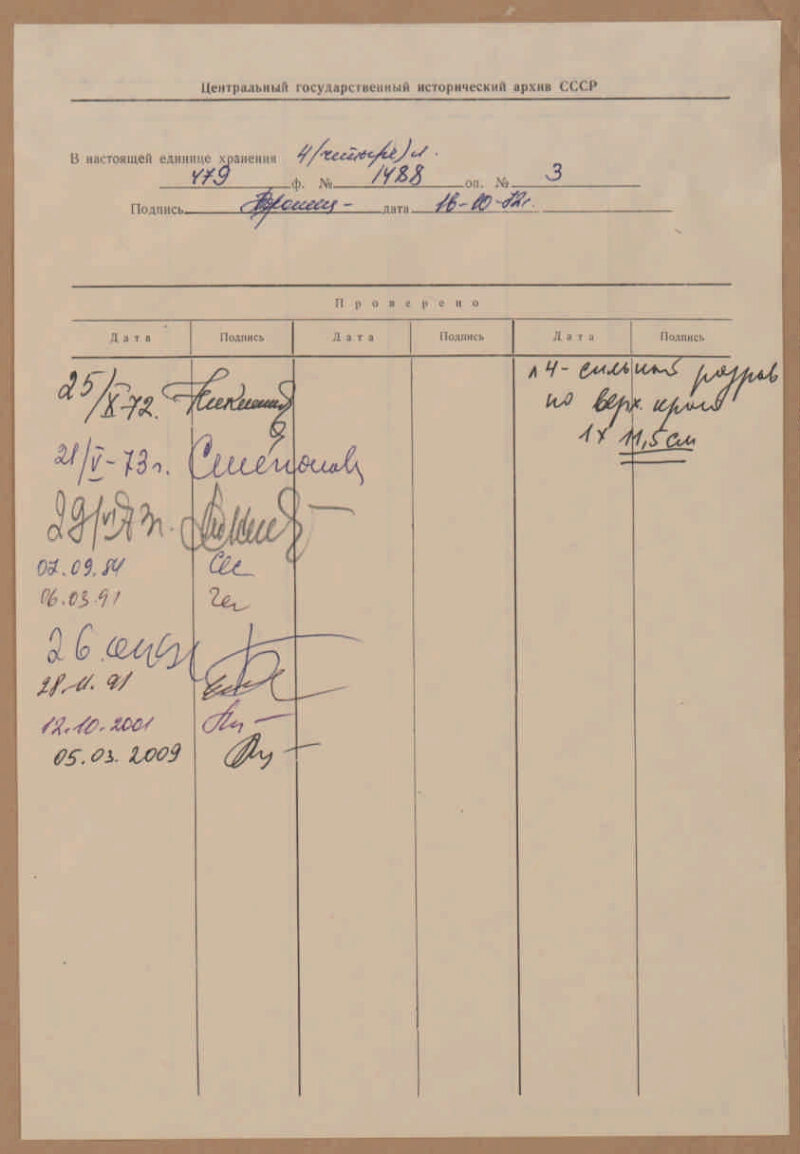 Центральный государственный исторический архив СССР
В настоящей единице хранения 4/четыре/л.
479 ф. № 1488 оп. № 3
Подпись дата 16-10-72г.
Проверено
Дата Подпись Дата Подпись Дата Подпись
25/X-72. л 4 - сильный разрыв
по верх. краю
1 х 11,5 см
21/V-73г.
29/VI 73г.
07.09.84
06.03.91
26
28.11.91
12.10.2001
05.03.2009